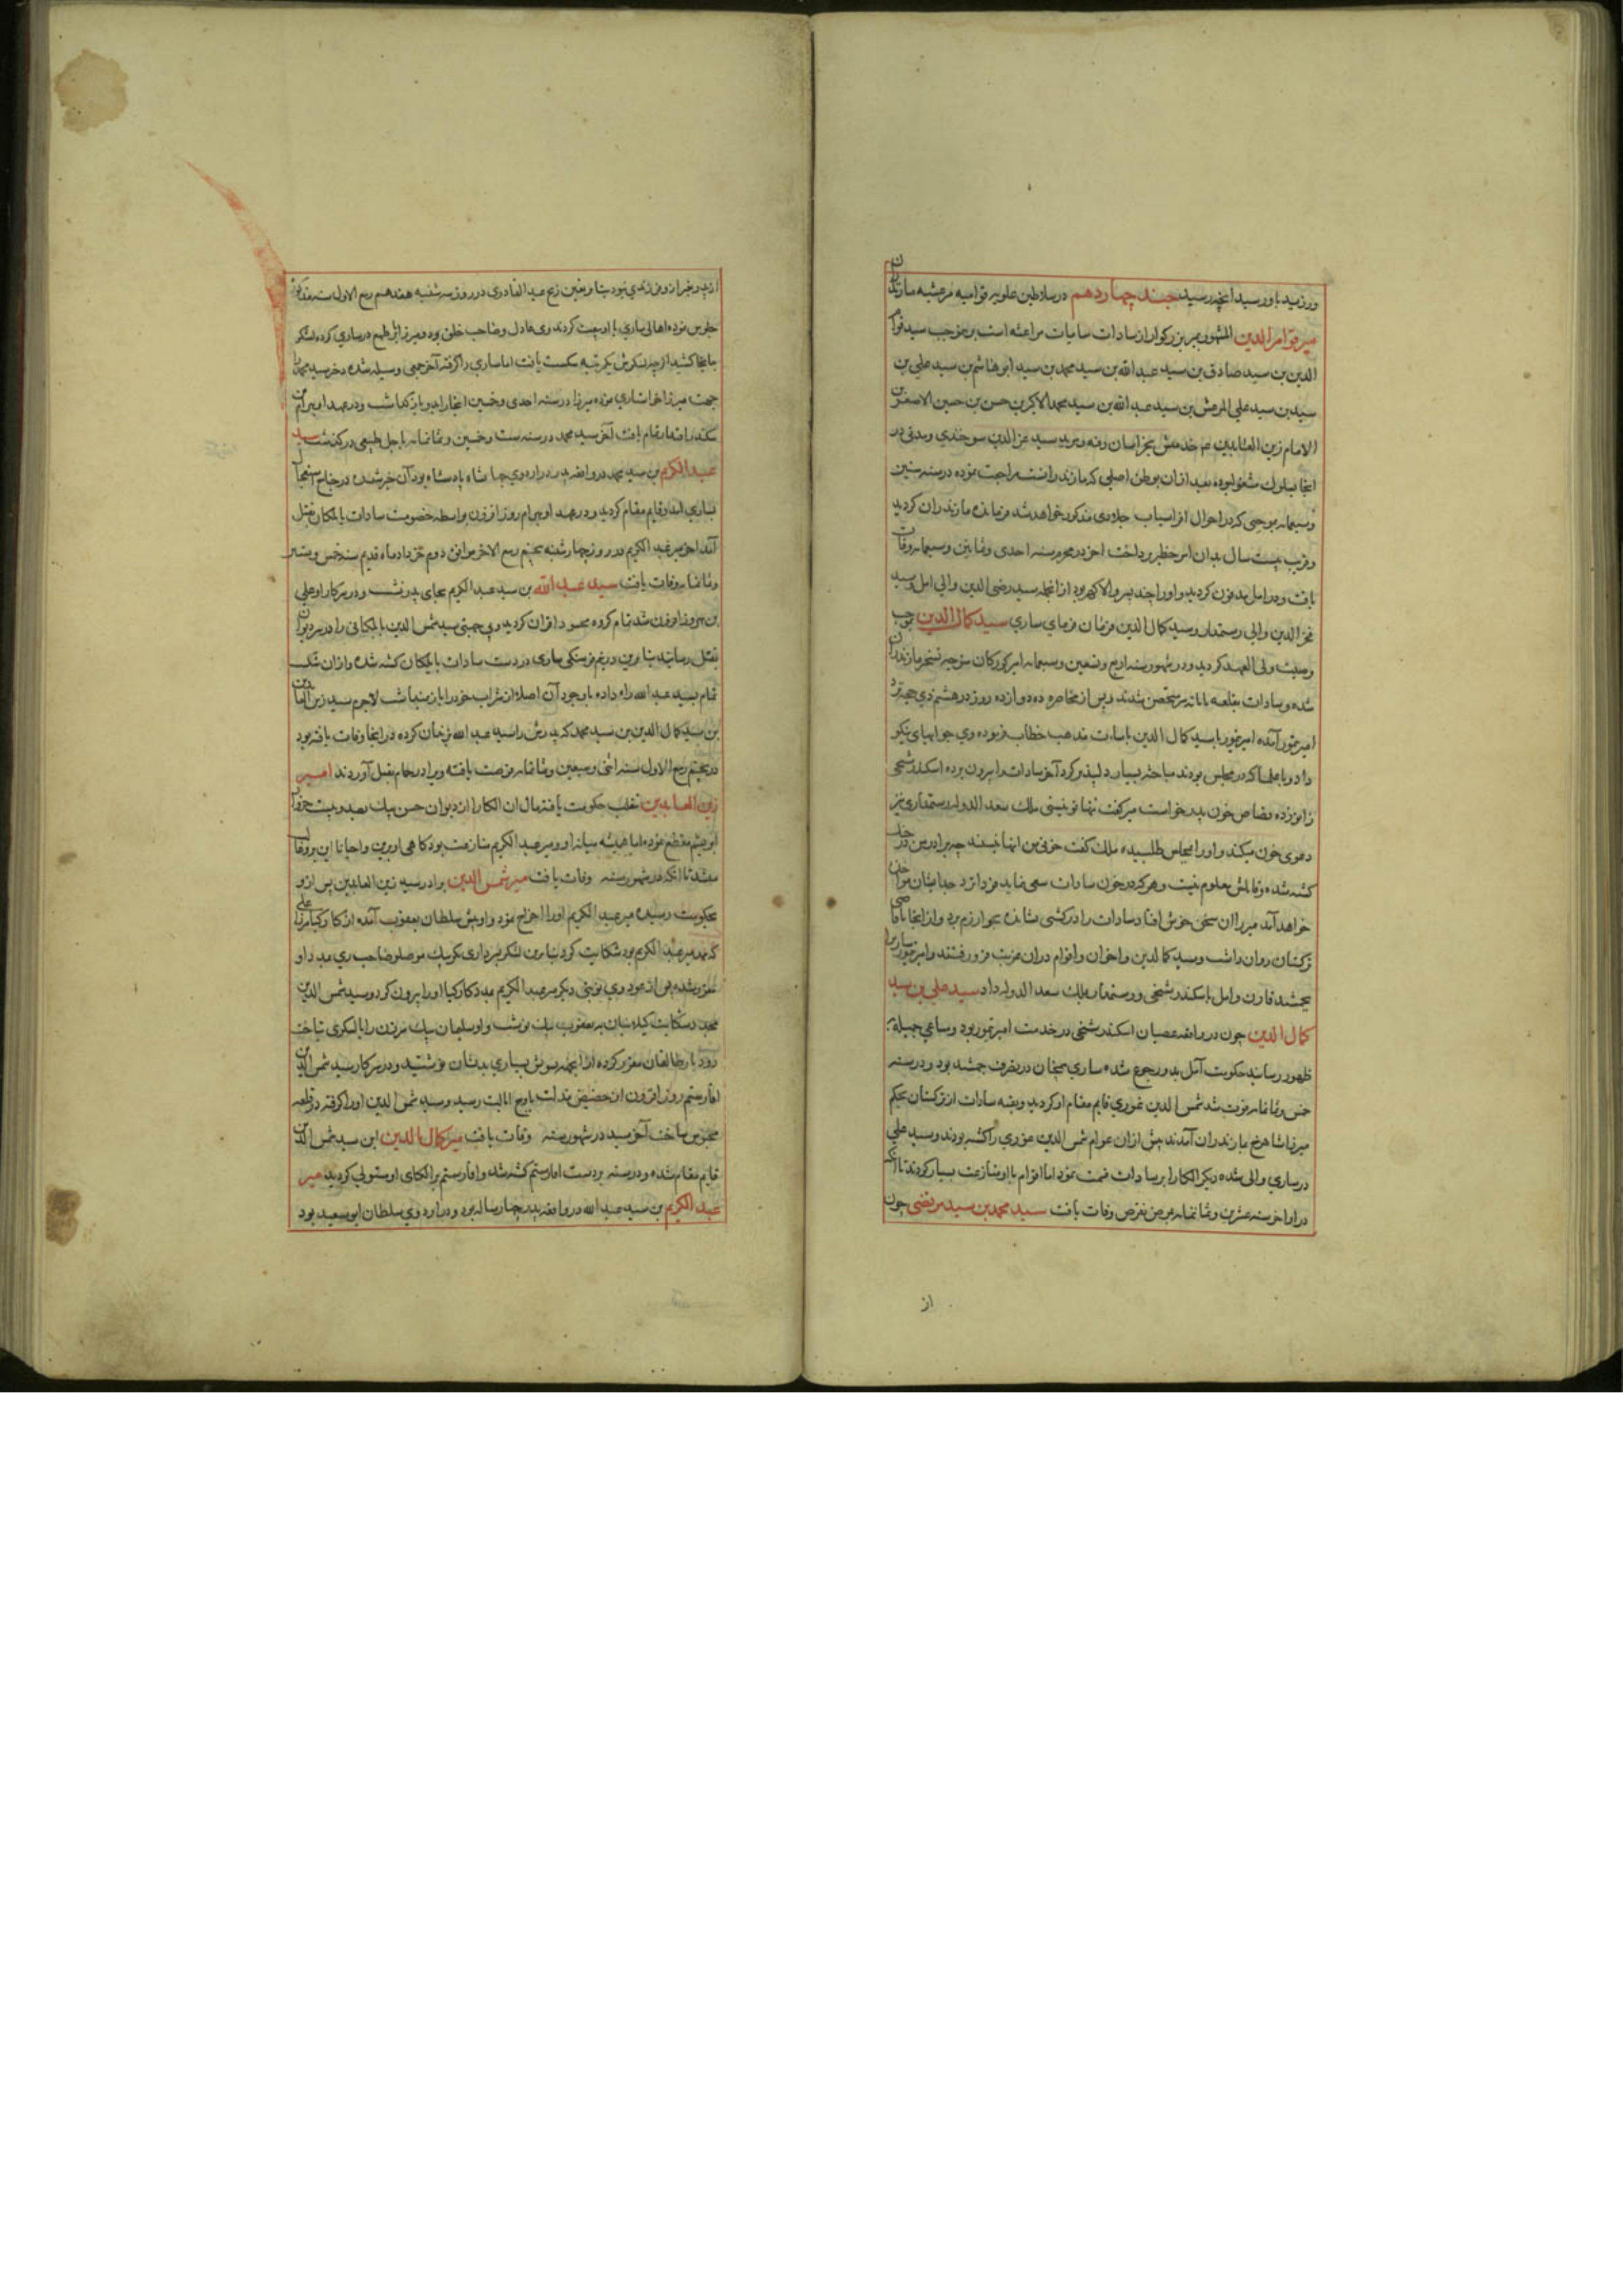 ورزید باو رسید آنچه رسید جند چهاردهم در سلاطین علویه قوامیه مرعشیه مازندران
میر قوام الدین المشهور بمیر بزرک او از سادات مراعشه است بر موجب سید قوام
الدین بن سید صادق بن سید عبدالله بن سید محمد بن سید ابو هاشم بن سید علی بن
سید بن سید علی المرعش بن سید عبدالله بن سید محمد الاکبر بن حسن بن حسین الاصغر بن
الامام زین العابدین خراسان رفته ومرید سید عز الدین سوغندی ومدتی در
انجا بسلوک مشغول بوده بعد ازان بوطن اصلی که مازندرانست مراجعت نموده در سنه ستین
وسبعمائه بموجبی که در احوال افراسیاب جلاوی مذکور خواهد شد فرمانده مازندران کردید
وقریب بیست سال بدان امر خطیر پرداخت اخر در محرم سنه احدی وثمانین وسبعمائه وفات
یافت ودر امل مدفون کردید واورا چند پسر والا کهر بود از انجمله سید رضی الدین والی امل وسید
فخر الدین والی رستمدار وسید کمال الدین فرمان فرمای ساری سید کمال الدین بموجب
وصیت ولی العهد کردید ودر شهور سنه اربع وتسعین وسبعمایه امیر کورکان متوجه تسخیر مازندران
شده وسادات بقلعه ماهانه سر متحصن شدند وپس از محاصره ده دوازده روز در هشتم ذی
امیر تیمور آمده امیر تیمور با سید کمال الدین مذهب خطاب فرموده وی جوابهای نیکو
داد وبا علما که در مجلس بودند مباحثه بسیار دلپذیر کرد آخر سادات را بیرون برده اسکندر شیخی
زانو زده قصاص خون پدر خواست میر کفت تنها نوبتی ملک سعد الدوله رستمداری نیز
دعوی خون میکند واورا بمجلس طلبیده ملک کفت خونی من اینها نیستند چه برادر من در جنک
کشته شده وقاتلش معلوم نیست وهر که در خون سادات سعی نماید فردا نزد جد ایشان
خواهد آمد میر را ان سخن خوش افتاد سادات را در کشتی نشانده بخوارزم برد واز انجا
ترکستان روان داشت وسید کمال الدین واخوان واقوام دران غربت فرو رفتند وامیر تیمور ساری را
بجمشید قارن وامل باسکندر شیخی ورستمدار بملک سعد الدوله داد سید علی بن سید
کمال الدین چون در واقعه عصیان اسکندر شیخی در خدمت امیر تیمور بود ومساعی جمیله
ظهور رسانید حکومت آمل بدو رجوع شده ساری همچنان در تصرف جمشید بود ودر سنه
خمس وثمانمایه فوت شد شمس الدین غوری قایم مقام او کردید وبقیه سادات از ترکستان بحکم
میرزا شاهرخ بمازندران آمدند پیش ازان عوام شمس الدین غوری را کشته بودند وسید علی
در ساری والی شده دیکر الکا را بر سادات قسمت نمود اما اقوام با او منازعت بسیار کردند تا آنکه
در اواخر سنه عشرین وثمانمایه بمرض نقرس وفات یافت سید محمد بن سید مرتضی چون
از
از پدر بغیر از و فرزندی نبود بنا وبتعین عبد القادری در روز سه شنبه هفدهم ربیع الاول سنه مذکوره
جلوس نموده اهالی ساری با او بیعت کردند وی عادل وصاحب خلق بود ومیرزا در ساری کرده لشکر
بانجا کشید از یکمرتبه شکست یافت اما ساری را کرفته آخر جمعی وسیله شده دختر سید محمد را
جهت میرزا نموده میرزا در سنه احدی وخمسین انجا را بدو باز کذاشت ودر عهد او بهرام
سکندر اقتدار تمام یافت آخر سید محمد در سنه ست وخمسین وثمانمایه باجل طبیعی در کذشت سید
عبد الکریم بن سید محمد در واقعه پدر در اردوی جهانشاه پادشاه بود آن خبر شنیده
بساری آمد وقایم مقام کردید ودر عهد او بهرام روز افزون بواسطه خصومت سادات بابلکان بقتل
آمد اخر میر عبد الکریم در روز چهار شنبه پنجم ربیع الاخر موافق دوم خرداد ماه قدیم سنه خمس وستین
وثمانمایه وفات یافت سید عبد الله بن سید عبد الکریم بجای پدر نشست ودر سرکار او علی
بن روز افزون شد تمام کروه محسود اقران کردید سید شمس الدین بابلکانی را در سر دیوان
بقتل رسانید بنا برین در نیم فرسنکی ساری در دست سادات بابلکان کشته شد وازان شکست
تمام بسید عبد الله راه داده باوجود آن اصلا از شراب خود را باز نمیداشت لاجرم سید زین العابدین
بن سید کمال الدین بن سید محمد که پدرش را سید عبد الله کرده در انجا وفات یافته بود
در پنجم ربیع الاول سنه اثنی وسبعین وثمانمایه فرصت یافته ویرا در حمام بقتل آوردند امیر
زین العابدین بتغلب حکومت یافته مال ان الکا را از دیوان حسن بیک بصد وبیست خروار
ابریشم مقطع نموده اما همیشه میانه او ومیر عبد الکریم منازعت بود کاهی او برین واحیانا این برو غالب
میشد تا آنکه در شهور سنه وفات یافت میر شمس الدین برادر سید زین العابدین پس از و
بحکومت رسیده میر عبد الکریم اورا اخراج نمود واو پیش سلطان یعقوب آمده از کارکیا میرزا علی
که میر عبد الکریم بود شکایت کرد بنابرین لشکر بسرداری بکر بیک موصلو صاحب ری بمدد او
مقرر شده پس از عود وی نوبتی دیکر میر عبد الکریم بمدد کارکیا اورا بیرون کرد وسید شمس الدین
مجدد شکایت بیعقوب بیک نوشت واو سلیمان بیک را بالشکری بتاخت
رودبار وطالقان مقرر کرده ازا نجهت ساری بدیشان ودر سرکار سید شمس الدین
اقا رستم روز افزون از حضیض مذلت باوج ایالت رسید وسید شمس الدین اورا کرفته در قلعه
محبوس ساخت آخر سید در شهور سنه وفات یافت میر کمال الدین ابن سید شمس الدین
قایم مقام شده ودر سنه بر دست اقا رستم کشته شد واقا رستم بر الکای او مستولی کردید میر
عبد الکریم بن سید عبد الله در واقعه پدر چهار ساله بود ودر اردوی سلطان ابو سعید بود